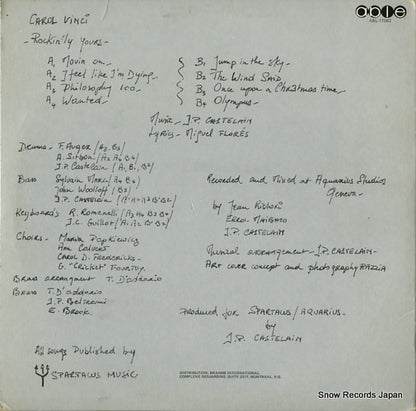 CAROL VINCI
able
ABL-17063
- Rockin'ly yours -
A1 Movin on -
A2 I feel like I'm Dying -
A3 Philosophy 100 -
A4 Wanted -
B1 Jump in the sky -
B2 The Wind Said
B3 Once upon a Christmas time -
B4 Olympus -
Music - J.P. CASTELAIN
Lyrics - Miguel FLORES
Drums - F. Auger (A2. B3)
A. Sirbon (A3 A4 B2)
J.P. Castelain (A1, B1, B4)
Bass Sylvain Marc (A4 B2)
John Woolloff (B3)
J.P. CASTELAIN
Keyboards R. Romanelli (A3 A4 B2 B4)
J.C. Guillot
Choirs - Maria Popkiewicz
Ann Calvert
Carol D. Fredericks
G. "Cricket" Fourstoy
Brass arrangment T. D'addario
Brass T. D'addario
J.P. Beltrami
E. Brook.
Recorded and Mixed at Aquarius Studios
Geneva -
by Jean Ristori
Errol Maibato
J.P. CASTELAIN
Musical arrangement - J.P. CASTELAIN -
Art cover concept and photography RAZZIA
Produced for SPARTACUS / AQUARIUS -
by
J.P. CASTELAIN
All songs Published by
SPARTACUS MUSIC -
DISTRIBUTION: BRAMS INTERNATIONAL
COMPLEXE DESJARDINS, SUITE 2317, MONTREAL, P.Q.
Snow Records Japan
www.snowrecords.jp